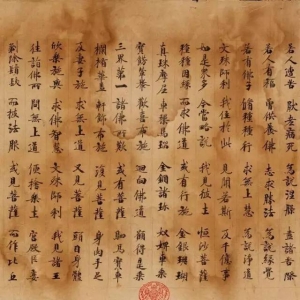 若人遭苦 厭老病死 為說涅槃 盡諸苦際
若人有福 曾供養佛 志求勝法 為說緣覺
若有佛子 修種種行 求無上慧 為說淨道
文殊師利 我住於此 見聞若斯 及千億事
如是眾多 今當略說 我見彼土 恒沙菩薩
種種因緣 而求佛道 或有行施 金銀珊瑚
真珠摩尼 車磲馬瑙 金剛諸珍 奴婢車乘
寶飾輦輿 歡喜布施 迴向佛道 願得是乘
三界第一 諸佛所歎 或有菩薩 駟馬寶車
欄楯華蓋 軒飾布施 復見菩薩 身肉手足
及妻子施 求無上道 又見菩薩 頭目身體
欣樂施與 求佛智慧 文殊師利 我見諸王
往詣佛所 問無上道 便捨樂土 宮殿臣妾
剃除鬚髮 而被法服 或見菩薩 而作比丘